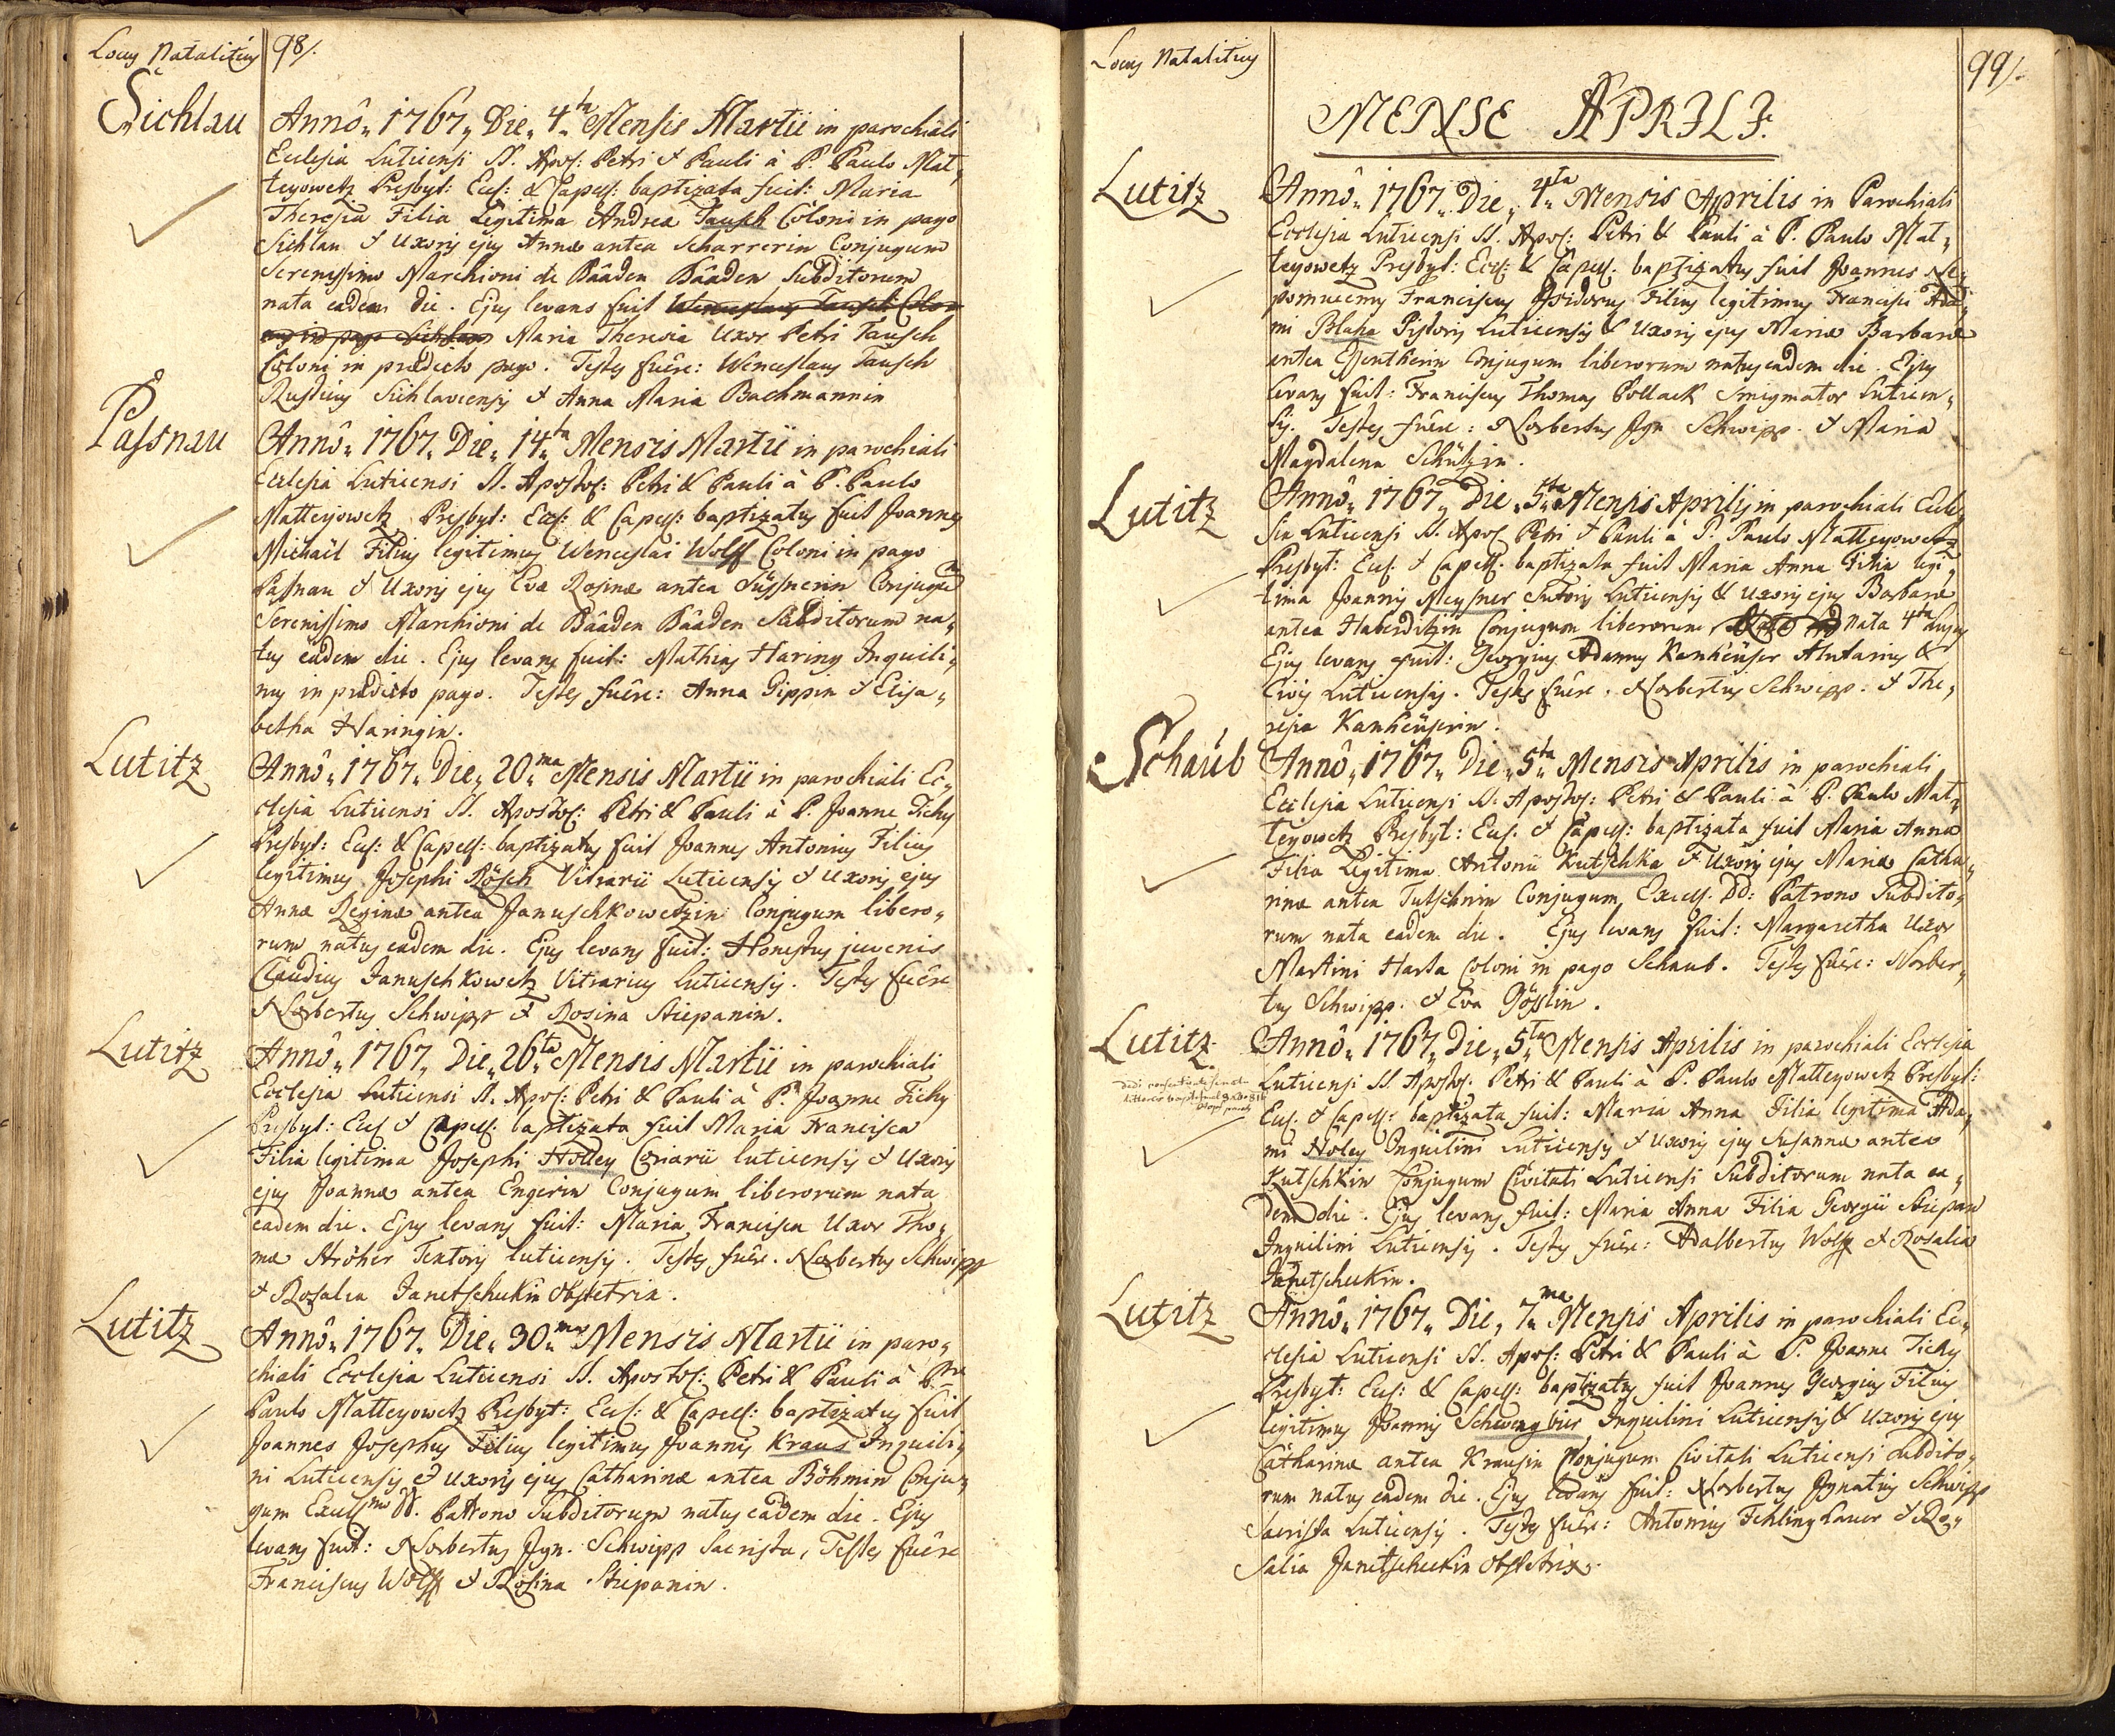 Locus Natalitius 98/.
Sichlau
Annô„ 1767„ Die„ 4ta Mensis Martii in parochiali
Ecclesia Luticensi SS. Apos: Petri & Pauli à P. Paulo Mat„
teyowetz Presbyt: Eccl: & Capell: baptizata fuit: Maria
Theresia Filia Legitima Andreæ Tausch Coloni in pago
Sichlau & Uxoris ejus Annæ antea Scharrerin Conjugum
Serenissimo Marchioni de Bâaden Bâaden Subditorum
nata eadem die. Ejus levans fuit Wenceslaus Tausch Colo„
nus in pago Sichlau Maria Theresia Uxor Petri Tausch
Coloni in prædicto pago. Testes fuêre: Wenceslaus Tausch
Rusticus Sichlaviensis & Anna Maria Bachmannin
Passnau
Annô„ 1767„ Die„ 14ta Mensis Martii in parochiali
Ecclesia Luticensi SS. Apostol: Petri & Pauli à P. Paulo
Matteyowetz Presbyt: Eccl: & Capell: baptizatus fuit Joannes
Michaël Filius legitimus Wenceslai Wolff Coloni in pago
Passnau & Uxoris ejus Evæ Rosinæ antea Füssnerin Conjugum
Serenissimo Marchioni de Bâaden Bâaden Subditorum na„
tus eâdem die. Ejus levans fuit: Mathias Haring Inquili„
nus in prædicto pago. Testes fuêre: Anna Pippin & Elisa„
betha Haringin.
Lutitz
Annô„ 1767„ Die„ 20ma Mensis Martii in parochiali Ec„
clesia Luticensi SS. Apostol: Petri & Pauli à P. Joanne Tichy
Presbyt: Eccl: & Capell: baptizatus fuit Joannes Antonius Filius
legitimus Josephi Rösch Vitrarii Luticensis & Uxoris ejus
Annæ Reginæ antea Januschkowetzin Conjugum libero„
rum natus eadem die. Ejus levans fuit: Honestus juvenis
Claudius Januschkowetz Vitrarius Luticensis. Testes fuêre
Norbertus Schwipp & Rosina Stiepanin.
Lutitz
Annô„ 1767„ Die„ 26ta Mensis Martii in parochiali
Ecclesia Luticensi SS. Apos: Petri & Pauli à P. Joanne Tichy
Presbyt: Eccl & Capell: baptizata fuit Maria Francisca
Filia legitima Josephi Holley Coriarii luticensis & Uxoris
ejus Joannæ antea Engerin Conjugum liberorum nata
eadem die. Ejus levans fuit: Maria Francisca Uxor Tho„
mæ Ströher Textoris luticensis. Testes fuêre. Norbertus Schwipp
& Rosalia Janetschuckin Obstetrix.
Lutitz
Annô„ 1767„ Die„ 30ma Mensis Martii in paro„
chiali Ecclesia Luticensi SS. Apostol: Petri & Pauli à Pre
Paulo Matteyowetz Presbyt: Eccl: & Capell: baptizatus fuit
Joannes Josephus Filius legitimus Joannis Kraus Inquili„
ni Luticensis & Uxoris ejus Catharinæ antea Böhmin Conju„
gum Excellmo DD. Patrono Subditorum natus eadem die. Ejus
levans fuit: Norbertus Ign. Schwipp Sacrista, Testes fuêre
Franciscus Wolff & Rosina Stiepanin.
Locus Natalitius 99/.
MENSE APRILI.
Lutitz
Annô„ 1767„ Die„ 4ta Mensis Aprilis in Parochiali
Ecclesia Luticensi SS. Apos: Petri & Pauli à P. Paulo Mat„
teyowetz Presbyt: Eccl: & Capell. baptizatus fuit Joannes Ne„
pomucenus Franciscus Isidorus Filius legitimus Francisci Ada„
mi Blaha Pistoris Luticensis & Uxoris ejus Mariæ Barbaræ
antea Conjugum liberorum natus eadem die. Ejus
levans fuit: Franciscus Thomas Pollack Smigmator Luticen„
sis. Testes fuêre: Norbertus Ign Schwipp. & Maria
Magdalena Schützin.
Lutitz
Annô„ 1767„ Die„ 5ta Mensis Aprilis in parochiali Eccle„
sia Luticensi SS. Apos Petri & Pauli à P. Paulo Matteyowetz
Presbyt: Eccl. & Capell. baptizata fuit Maria Anna Filia legi„
tima Joannis Meysner Sutoris Luticensis & uxoris ejus Barbaræ
antea Haberditzin Conjugum liberorum nata 4ta hujus
Ejus levans fuit: Georgius Adamus Kenheüser Alutarius &
Civis Luticensis. Testes fuêre. Norbertus Schwipp. & The„
resia Kamheüserin.
Schaub
Annô„ 1767„ Die„ 5ta Mensis Aprilis in parochiali
Ecclesia Luticensi SS. Apostol: Petri & Pauli à P. Paulo Mat„
teyowetz Presbyt: Eccl. & Capell: baptizata fuit Maria Anna
Filia Legitima Antonii Kutschka & Uxoris ejus Mariæ Catha„
rinæ antea Tutschnin Conjugum, Excell. DD: Patrono Subdito„
rum nata eadem die. Ejus levans fuit: Margaretha Uxor
Martini Harta Coloni in pago Schaub. Testes fuêre: Norber„
tus Schwipp. & Eva Gösslin.
Lutitz
Annô„ 1767„ Die„ 5ta Mensis Aprilis in parochiali Ecclesia
Luticensi SS. Apostol. Petri & Pauli à P. Paulo Matteyowetz Presbyt:
Eccl. & Capell: baptizata fuit: Maria Anna Filia legitima Ada„
mi Holey Inquilini Luticensis & Uxoris ejus Susannæ antea
Kutschkin Conjugum Civitati Luticensi Subditorum nata ea„
dem die. Ejus levans fuit: Maria Anna Filia Georgii Stiepan
Inquilini Luticensis. Testes fuêre: Adalbertus Wolff & Rosalia
Janetscheckin.
Lutitz
Annô„ 1767„ Die„ 7ma Mensis Aprilis in parochiali Ec„
clesia Luticensi SS. Apos: Petri & Pauli à P. Joanne Tichy
Presbyt: Eccl: & Capell: baptizatus fuit Joannes Georgius Filius
legitimus Joannis Schwengbier Inquilini Luticensis & Uxoris ejus
Catharinæ antea Krausin Conjugum Civitati Luticensi Subdito„
rum natus eadem die. Ejus levans fuit: Norbertus Ignatius Schwipp
Sacrista Luticensis. Testes fuêre: Antonius Fehlinglauer & Ro„
salia Janetscheckin Obstetrix.